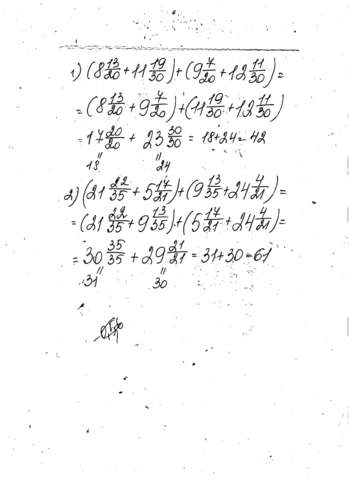 1) (8 13/20 + 11 19/30) + (9 7/20 + 12 11/30) =
= (8 13/20 + 9 7/20) + (11 19/30 + 12 11/30)
= 17 20/20 + 23 30/30 = 18+24 = 42
18 24
2) (21 22/35 + 5 17/21) + (9 13/35 + 24 4/21) =
= (21 22/35 + 9 13/35) + (5 17/21 + 24 4/21) =
= 30 35/35 + 29 21/21 = 31+30 = 61
31 30